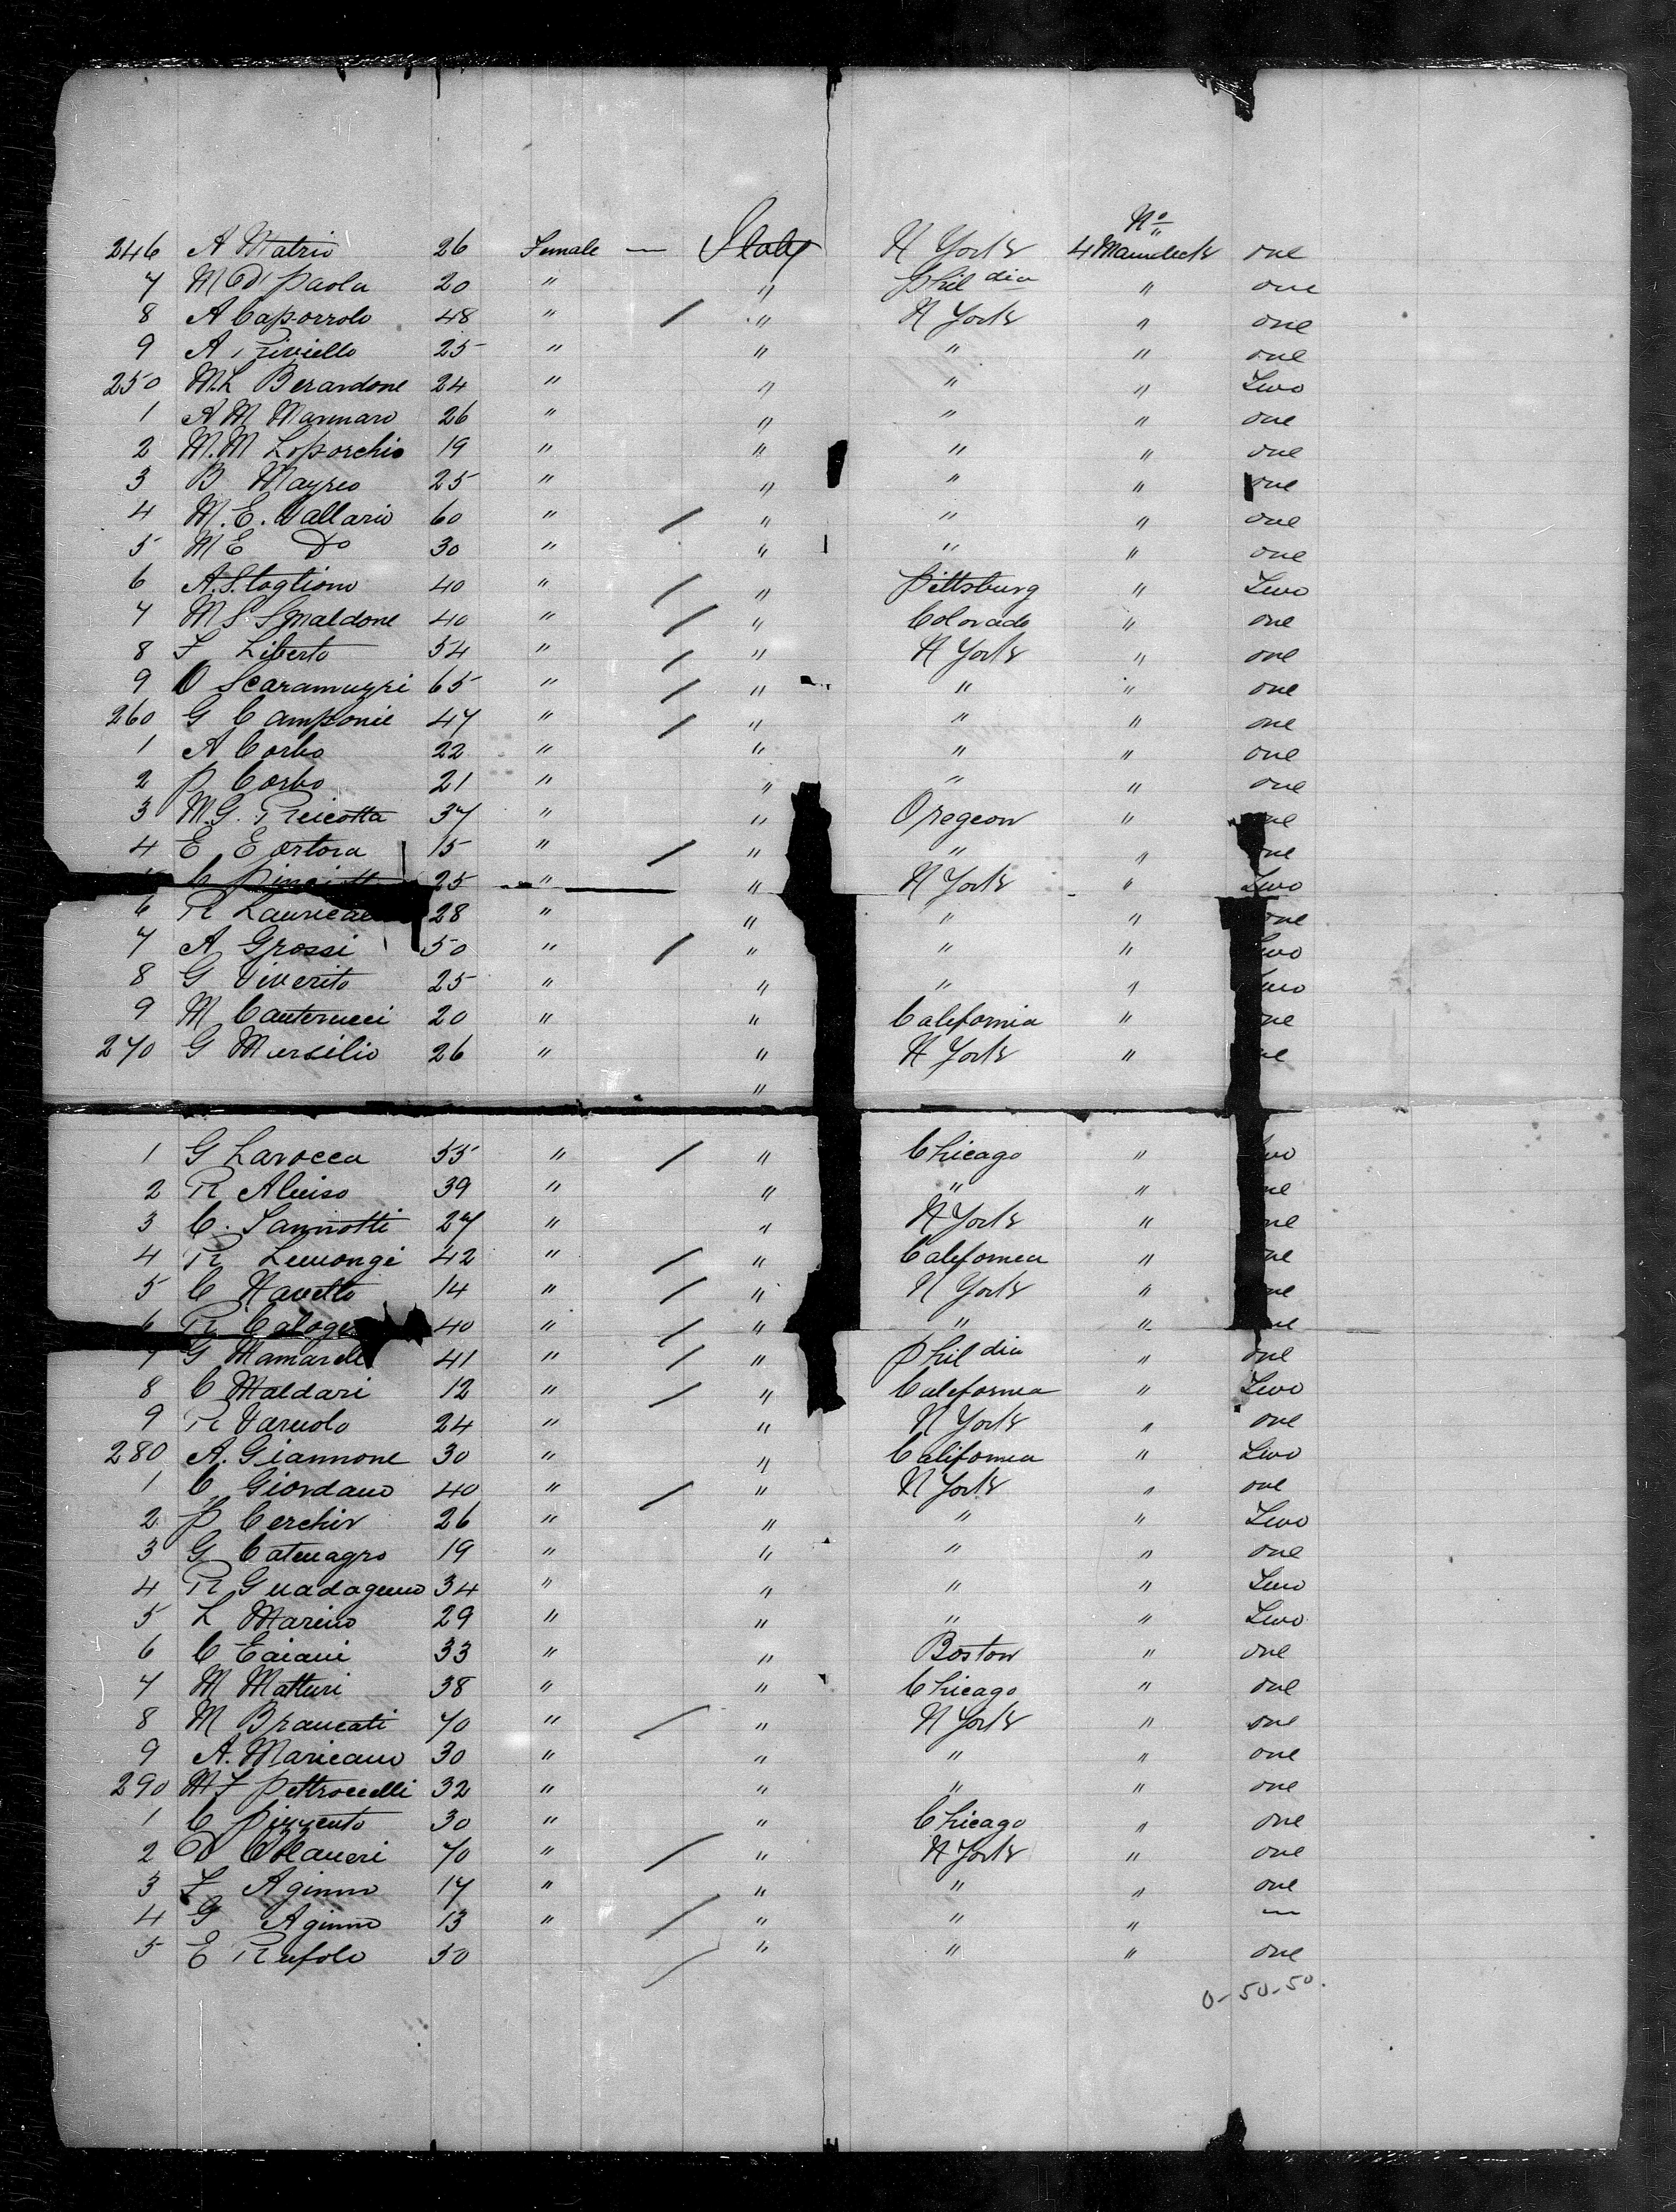 No
246 A Matrio 26 Female — Italy N York 4 Maindeck one
7 M D Paola 20 " " Phil dia " one
8 A Caporrolo 48 " / " N York " one
9 A Riviello 25 " " " " one
250 M.L Berardone 24 " " " " Two
1 A M Mannaro 26 " " " " one
2 M.M Loporchio 19 " " " " one
3 B Mayreo 25 " " " " one
4 M.E. Vallario 60 " / " " " one
5 M E Do 30 " " " " one
6 A.S. toglione 40 " / " Pittsburg " Two
7 M S Smaldone 40 " / " Colorado " one
8 F Liberto 54 " / " N York " one
9 O Scaramuzzi 65 " / " " " one
260 G Camponie 47 " / " " " one
1 A Corbo 22 " " " " one
2 P Corbo 21 " " " " one
3 M.G. Reicotta 37 " " Oregeon "
4 E Eortora 15 " / " " "
C 25 " " N York " Two
6 R 28 " " " " one
7 A Grossi 50 " / " " "
8 G Viverito 25 " " " "
9 M Canterucci 20 " " California "
270 G Mursilio 26 " " N York "
"
1 G Larocca 55 " / " Chicago "
2 R Aluiso 39 " " " "
3 C. Iannotti 27 " " N York "
4 R Lemongi 42 " / " California "
5 C Navetto 14 " / " N York "
6 R 40 " / " " "
7 G 41 " / " Phil dia " one
8 C Maldari 12 " / " California " Two
9 R Varuolo 24 " " N York " one
280 A. Giannone 30 " " California " Two
1 C Giordano 40 " / " N York " one
2 P Cerchir 26 " " " " Two
3 G Catenagro 19 " " " " one
4 R Guadagnino 34 " " " " Two
5 L Marino 29 " " " " Two
6 C Eaiani 33 " " Boston " one
7 M Matturi 38 " " Chicago " one
8 M Brancati 70 " / " N York " one
9 A. Maricano 30 " " " " one
290 M F Pettrocelli 32 " " " " one
1 C Pizzento 30 " " Chicago " one
2 D 70 " / " N York " one
3 F Aginno 17 " " " " one
4 G Aginno 13 " / " " " —
5 E Rufolo 50 / " " " one
0-50-50.